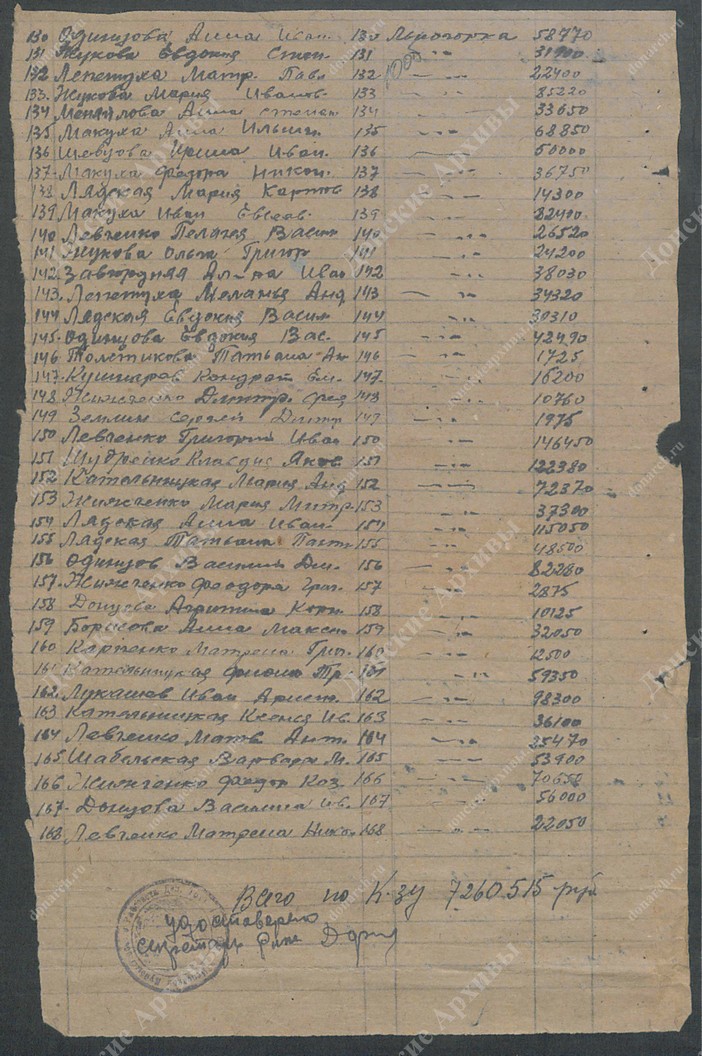 130 Одинцова Анна Иван. 130 Льногорка 58770
131 Жукова Евдокия Степ. 131 31900
132 Лепетуха Матр. Павл 132 22400
133. Жукова Мария Иванов. 133 85220
134 Анна Степан 134 33650
135 Макуха Анна Ильин. 135 68850
136 Шевцова Ириша Иван. 136 50000
137. Макуха Федора Никон. 137 36750
138 Лядская Мария Карпов 138 14300
139 Макуха Иван Евсеев. 139 82400
140 Левченко Пелагея Васил 140 26520
141 Жукова Ольга Григор 141 24200
142. Иван 142 38030
143. Лепетуха Меланья Анд 143 34320
144 Лядская Евдокия Васил 144 30310
145. Одинцова Евдокия Вас. 145 42490
146 Толстикова Татьяна Ан 146 1725
147. Кушнарев Кондрат Ем. 147. 16200
148 Жижченко Дмитр. Фед 148 10760
149 Землин Сергей Дмитр 149 1975
150 Левченко Григорий Иван 150 146450
151 Клавдия Яков 151 122380
152 Катальницкая Мария Анд 152 72370
153 Жижченко Мария Митр 153 37300
154 Лядская Анна Иван. 154 115050
155 Ладская Татьяна 155 48500
156 Одинцов Василий Дм. 156 82280
157. Жижченко Феодора Григ. 157 2875
158 Донцова Агрипина Корн. 158 10125
159 Борисова Анна Макси 159 32050
160 Карпенко Матрена Григ. 160 12500
161 Катальницкая Тр. 161 59350
162. Лукашов Иван 162 98300
163 Катальницкая Ксения Ив. 163 36100
164 Левченко Матв. Ант. 164 25470
165 Шабельская Варвара М. 165 53900
166 Жижченко Федор Коз. 166 70650
167. Донцова Васлиша Ив. 167 56000
168. Левченко Матрена Никол 168 22050
Всего по К-зу 7260.515 руб
удостоверено
секретарь
Донские Архивы
donarch.ru